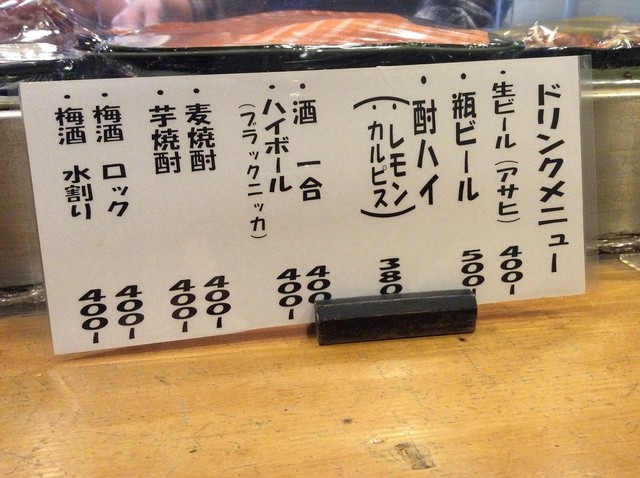 ドリンクメニュー
・生ビール(アサヒ) 400-
・瓶ビール 500-
・酎ハイ
(レモン・カルピス) 380
・酒 一合 400
・ハイボール 400-
(ブラックニッカ)
・麦焼酎 400-
・芋焼酎 400-
・梅酒 ロック 400-
・梅酒 水割り 400-